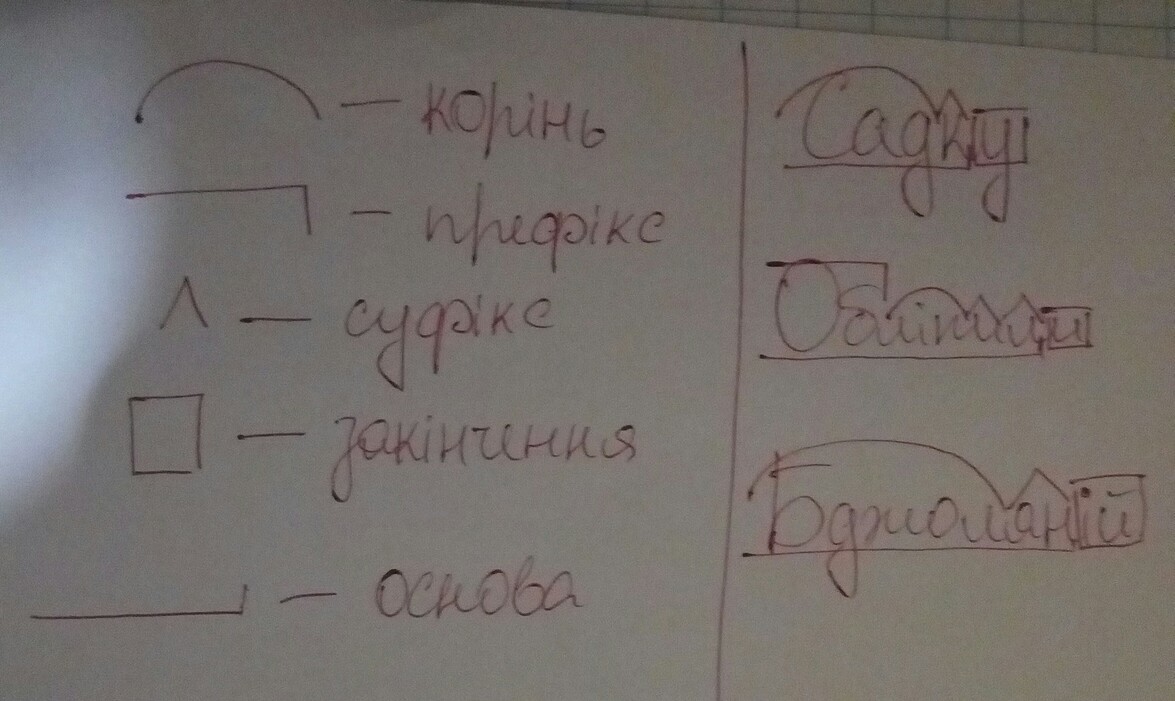 — корінь
— префікс
^ — суфікс
— закінчення
— основа
Садку
Бджоланій